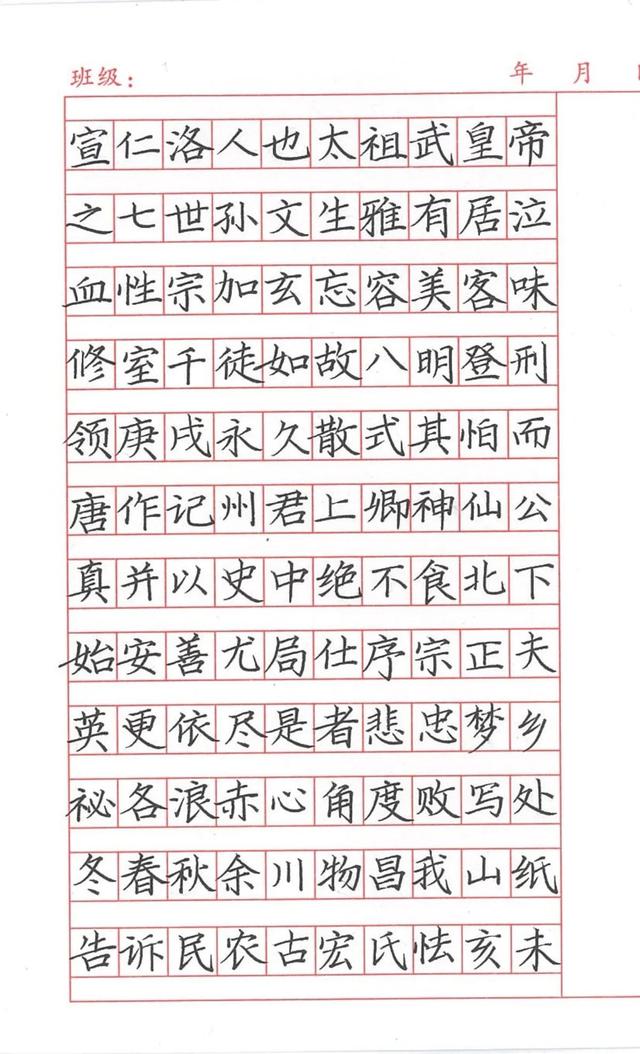 班级： 年 月
宣仁洛人也太祖武皇帝
之七世孙文生雅有居泣
血性宗加玄忘容美客味
修室千徒如故八明登刑
领庚戌永久散式其怕而
唐作记州君上卿神仙公
真并以史中绝不食北下
始安善尤局仕序宗正夫
英更依尽是者悲忠梦乡
祕各浪赤心角度败写处
冬春秋余川物昌我山纸
告诉民农古宏氏怯亥未